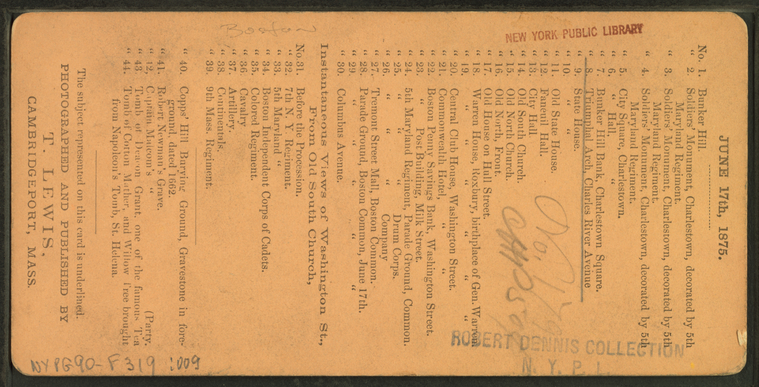 JUNE 17th, 1875.
No. 1. Bunker Hill.
" 2. Soldiers' Monument, Charlestown, decorated by 5th
Maryland Regiment.
" 3. Soldiers' Monument, Charlestown, decorated by 5th
Maryland Regiment.
" 4. Soldiers' Monument, Charlestown, decorated by 5th
Maryland Regiment.
" 5. City Square, Charlestown.
" 6. " Hall, "
" 7. Bunker Hill Bank, Charlestown Square.
" 8. Triumphal Arch, Charles River Avenue
" 9. State House.
" 10. " "
" 11. Old State House.
" 12. Faneuil Hall.
" 13. City Hall
" 14. Old South Church.
" 15. Old North Church.
" 16. Old North Front.
" 17. Old House on Hull Street.
" 18. Warren House, Roxbury, birthplace of Gen. Warren
" 19. " " " " "
" 20. Central Club House, Washington Street.
" 21. Commonwealth Hotel, " "
" 22. Boston Penny Savings Bank, Washington Street.
" 23. " Post Building, Milk Street.
" 24. 5th Maryland Regiment, Parade Ground, Common.
" 25. " " Drum Corps.
" 26. " " Company
" 27. Tremont Street Mall, Boston Common.
" 28. Parade Ground, Boston Common, June 17th.
" 29. " " " "
" 30. Columbus Avenue.
Instantaneous Views of Washington St.,
From Old South Church.
No.31. Before the Procession.
" 32. 7th N. Y. Regiment.
" 33. 5th Maryland "
" 34. Boston Independent Corps of Cadets.
" 35. Colored Regiment.
" 36 Cavalry
" 37. Artillery.
" 38. Continentals.
" 39. 9th Mass. Regiment.
" 40. Copps' Hill Burying Ground, Gravestone in fore-
ground, dated 1662.
" 41. Robert Newman's Grave.
" 42. Captain Malcom's " (Party.
" 43. Tomb of Deacon Grant, one of the famous Tea
" 44. Tomb of Cotton Mather, and Willow Tree brought
from Napoleon's Tomb, St. Helena.
The subject represented on this card is underlined.
PHOTOGRAPHED AND PUBLISHED BY
T. LEWIS.
CAMBRIDGEPORT, MASS.
Boston
NEW YORK PUBLIC LIBRARY
ROBERT DENNIS COLLECTION
N. Y. P. L.
NYPG90-F319 :009